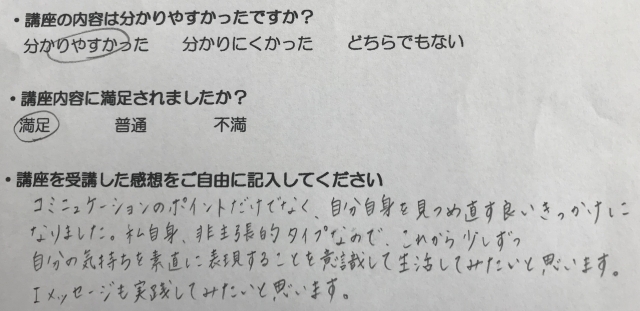 ・講座の内容は分かりやすかったですか？
分かりやすかった　分かりにくかった　どちらでもない
・講座内容に満足されましたか？
満足　普通　不満
・講座を受講した感想をご自由に記入してください
コミニュケーションのポイントだけでなく、自分自身を見つめ直す良いきっかけに
なりました。私自身、非主張的タイプなので、これから少しずつ
自分の気持ちを素直に表現することを意識して生活してみたいと思います。
Iメッセージも実践してみたいと思います。